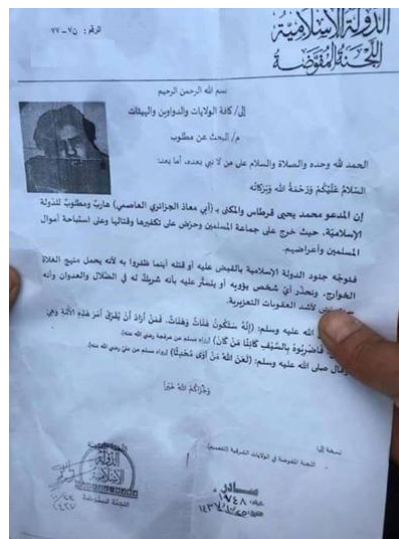 الدولة الإسلامية
اللجنة المفوضة
الرقم: ٧٥-٧٧
بسم الله الرحمن الرحيم
إلى/ كافة الولايات والدواوين والهيئات
م/ البحث عن مطلوب
الحمد لله وحده والصلاة والسلام على من لا نبي بعده، أما بعد:
السَّلامُ عَلَيْكُمْ وَرَحْمَةُ اللهِ وَبَرَكَاتُه
إن المدعو محمد يحيى قرطاس والمكنى بـ (أبي معاذ الجزائري العاصمي) هاربٌ ومطلوبٌ للدولة
الإسلامية، حيث خرج على جماعة المسلمين وحرّض على تكفيرها وقتالها وعلى استباحة أموال
المسلمين وأعراضهم.
فنوجّه جنود الدولة الإسلامية بالقبض عليه أو قتله أينما ظفروا به لأنه يحمل منهج الغلاة
الخوارج، ونحذّر أيّ شخص يؤويه أو يتستّر عليه بأنه شريكٌ له في الضّلال والعدوان وأنه
لأشد العقوبات التعزيرية.
الله عليه وسلم: (إنَّهُ سَتَكُونُ هَنَاتٌ وَهَنَاتٌ، فَمَنْ أَرَادَ أَنْ يُفَرِّقَ أَمْرَ هَذِهِ الأُمَّةِ وَهِيَ
فَاضْرِبُوهُ بِالسَّيْفِ كَائِنًا مَنْ كَانَ) [رواه مسلم عن عرفجة رضي الله عنه]
وقال صلى الله عليه وسلم: (لَعَنَ اللهُ مَنْ آوَى مُحْدِثًا) [رواه مسلم عن علي رضي الله عنه]
وَجَزَاكُمُ اللهُ خَيْرًا
نسخة إلى:
اللجنة المفوضة في الولايات الشرقية (للتعميم)
الدولة الإسلامية
اللجنة المفوضة
صادر